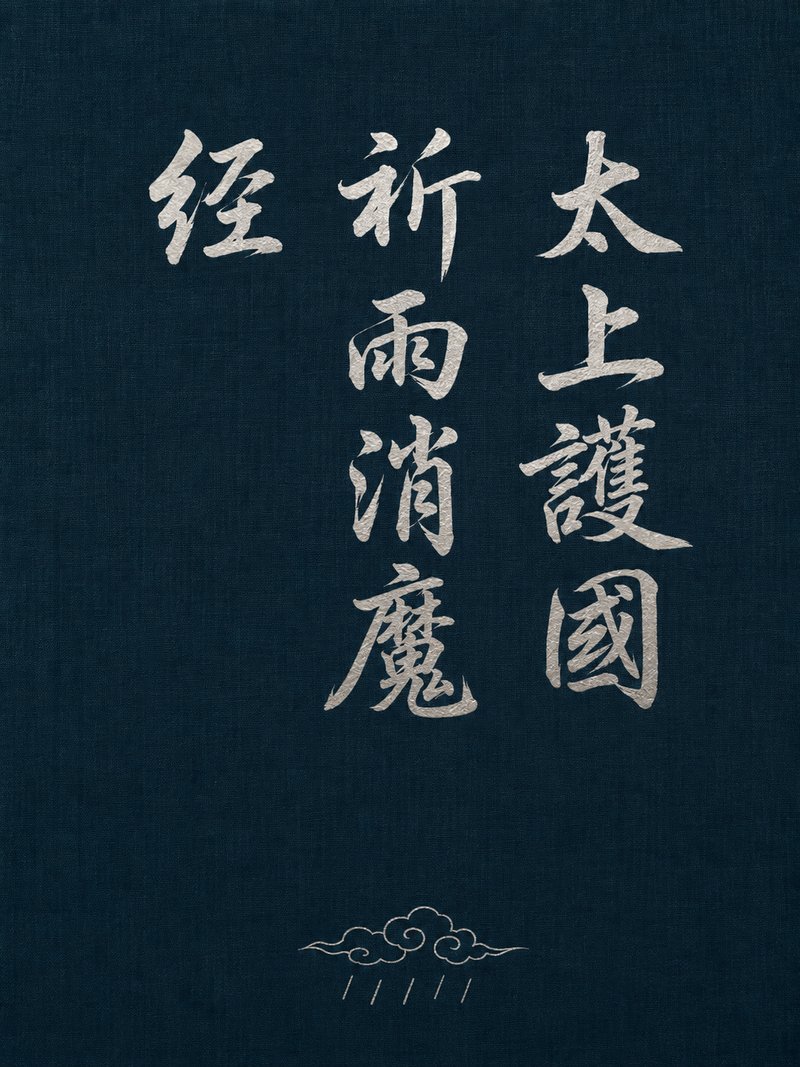 太上護國
祈雨消魔
经